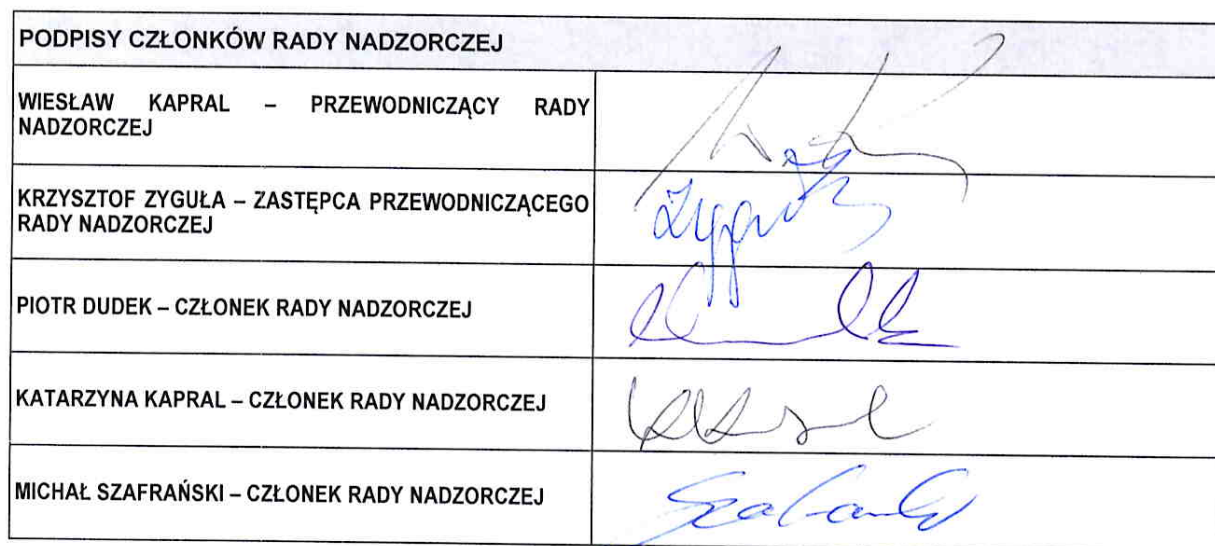 PODPISY CZŁONKÓW RADY NADZORCZEJ
WIESŁAW KAPRAL – PRZEWODNICZĄCY RADY
NADZORCZEJ
KRZYSZTOF ZYGUŁA – ZASTĘPCA PRZEWODNICZĄCEGO
RADY NADZORCZEJ
PIOTR DUDEK – CZŁONEK RADY NADZORCZEJ
KATARZYNA KAPRAL – CZŁONEK RADY NADZORCZEJ
MICHAŁ SZAFRAŃSKI – CZŁONEK RADY NADZORCZEJ